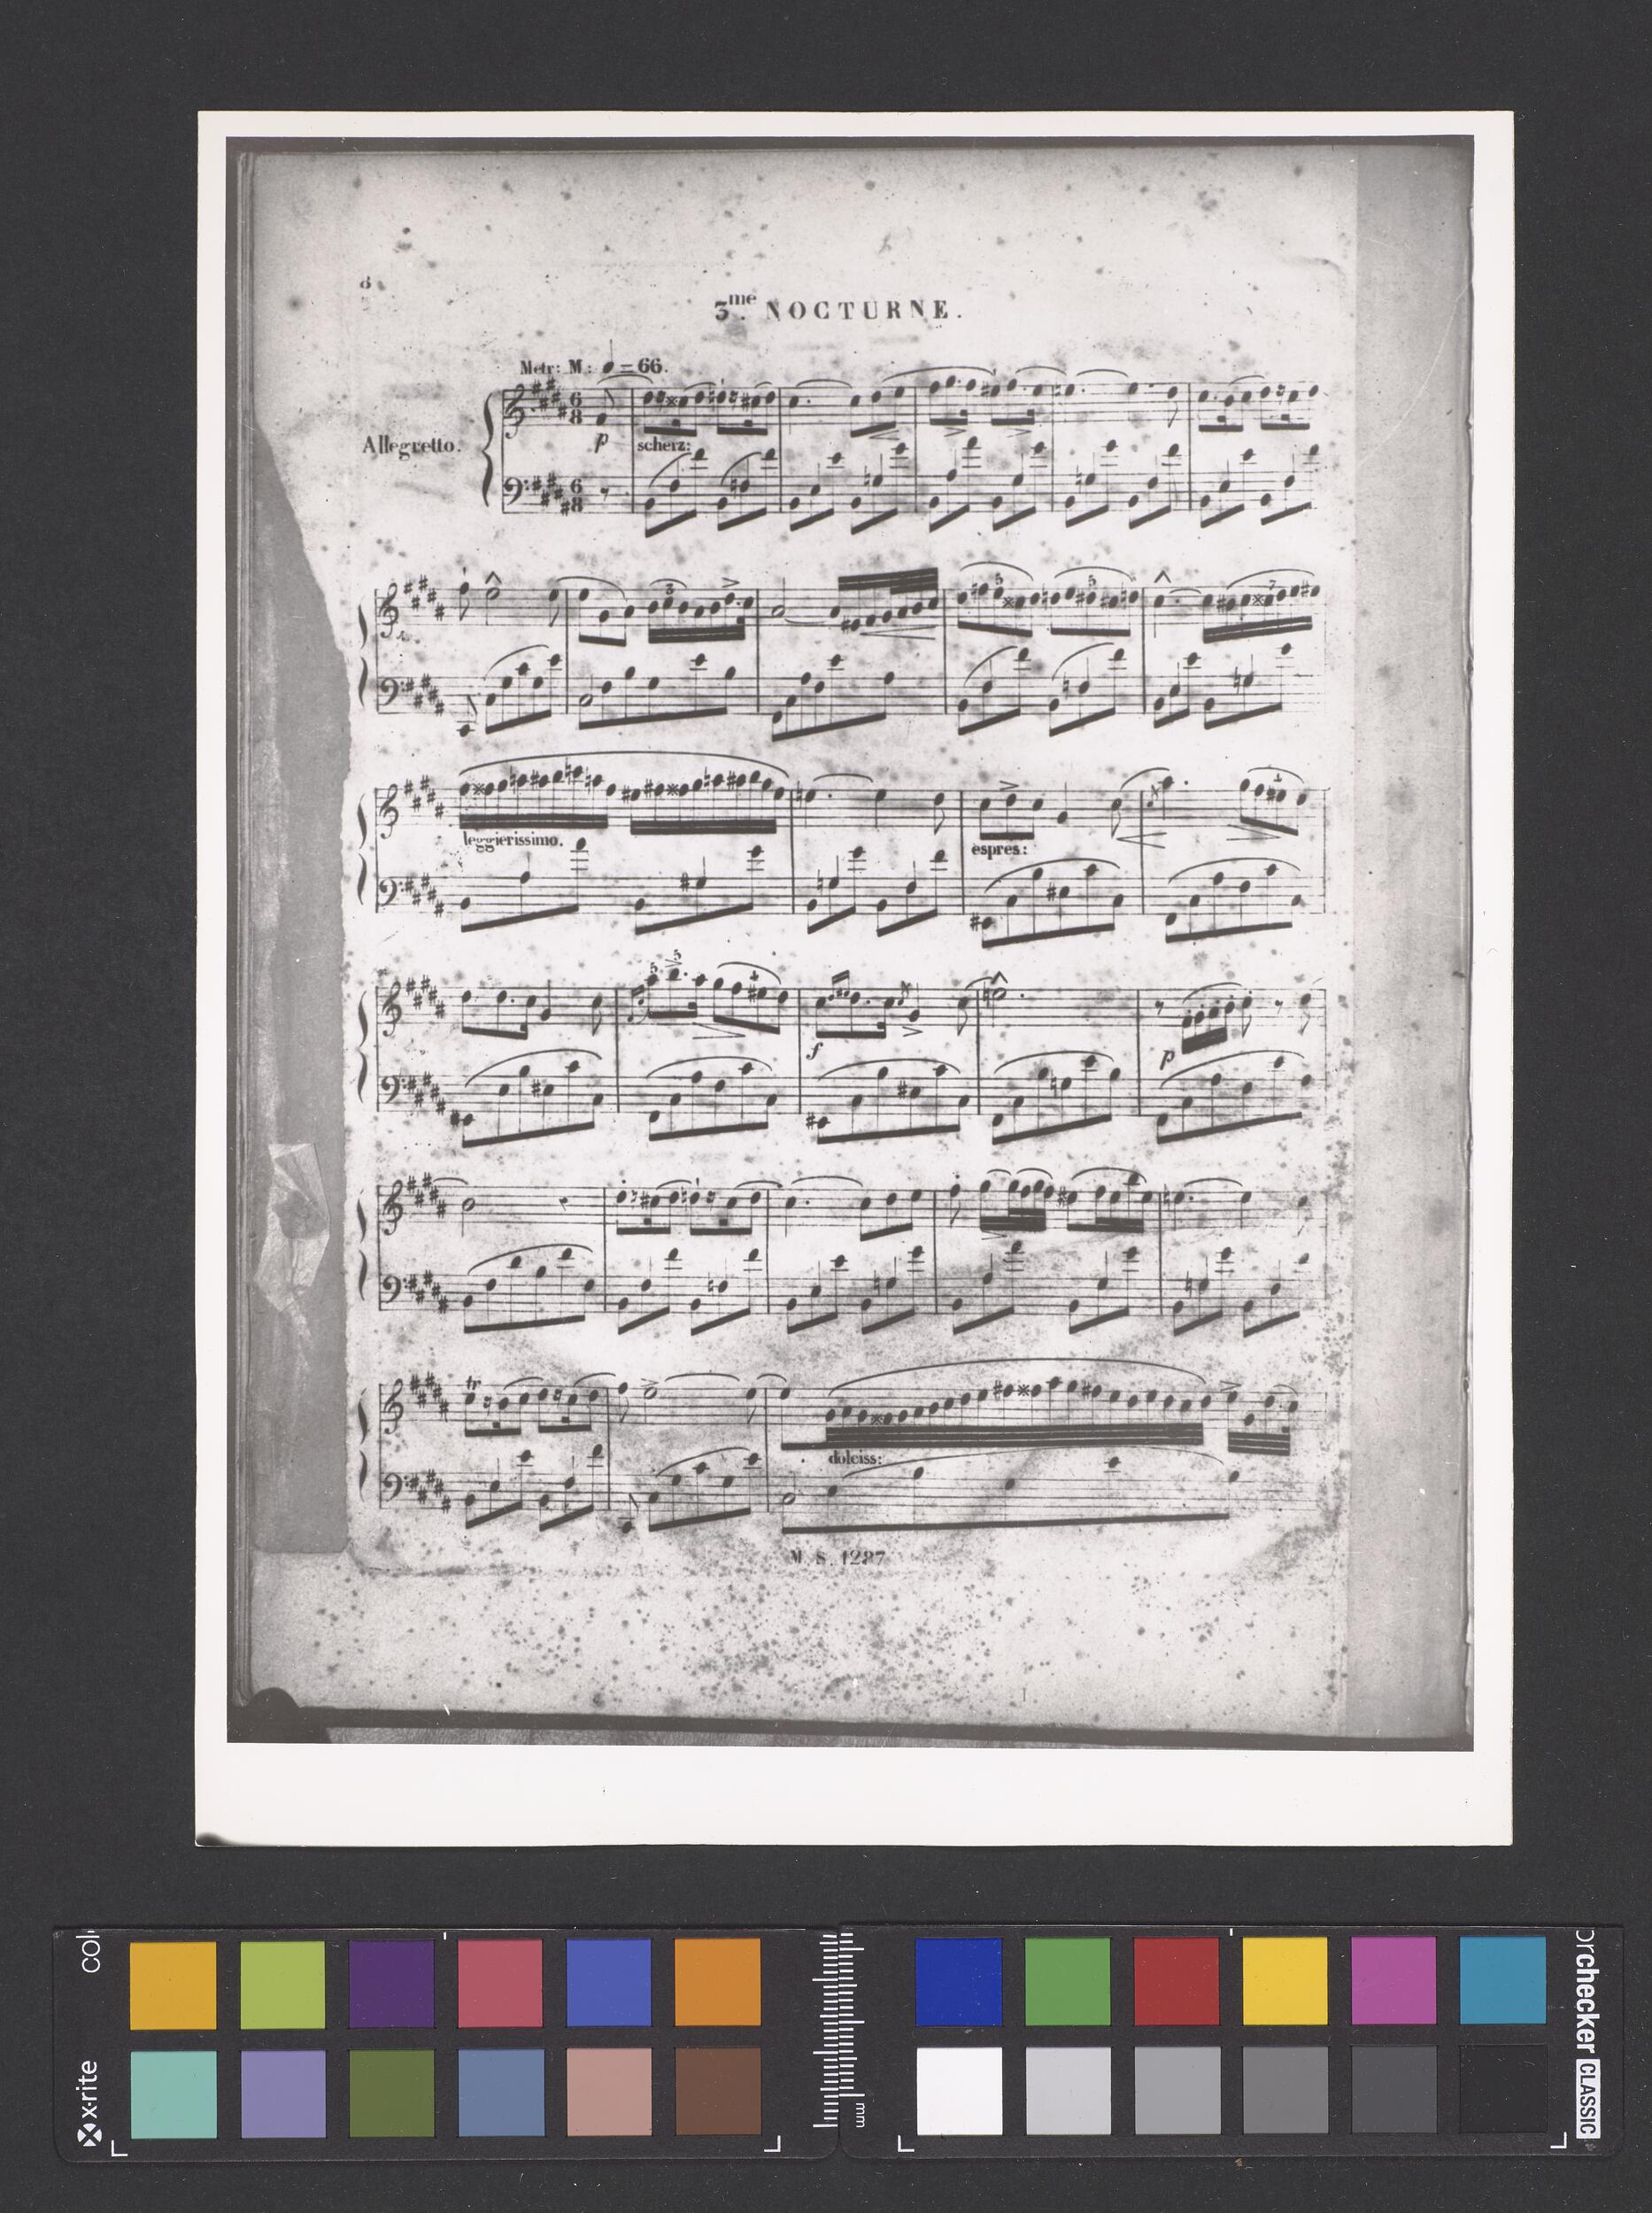 8
3me. NOCTURNE.
Metr: M: = 66.
Allegretto.
6 8
p
scherz:
6 8
3
5 5 7
leggierissimo.
espres:
5 5
f
p
tr
dolciss:
M. S. 1287
1
x-rite
colorchecker CLASSIC
mm